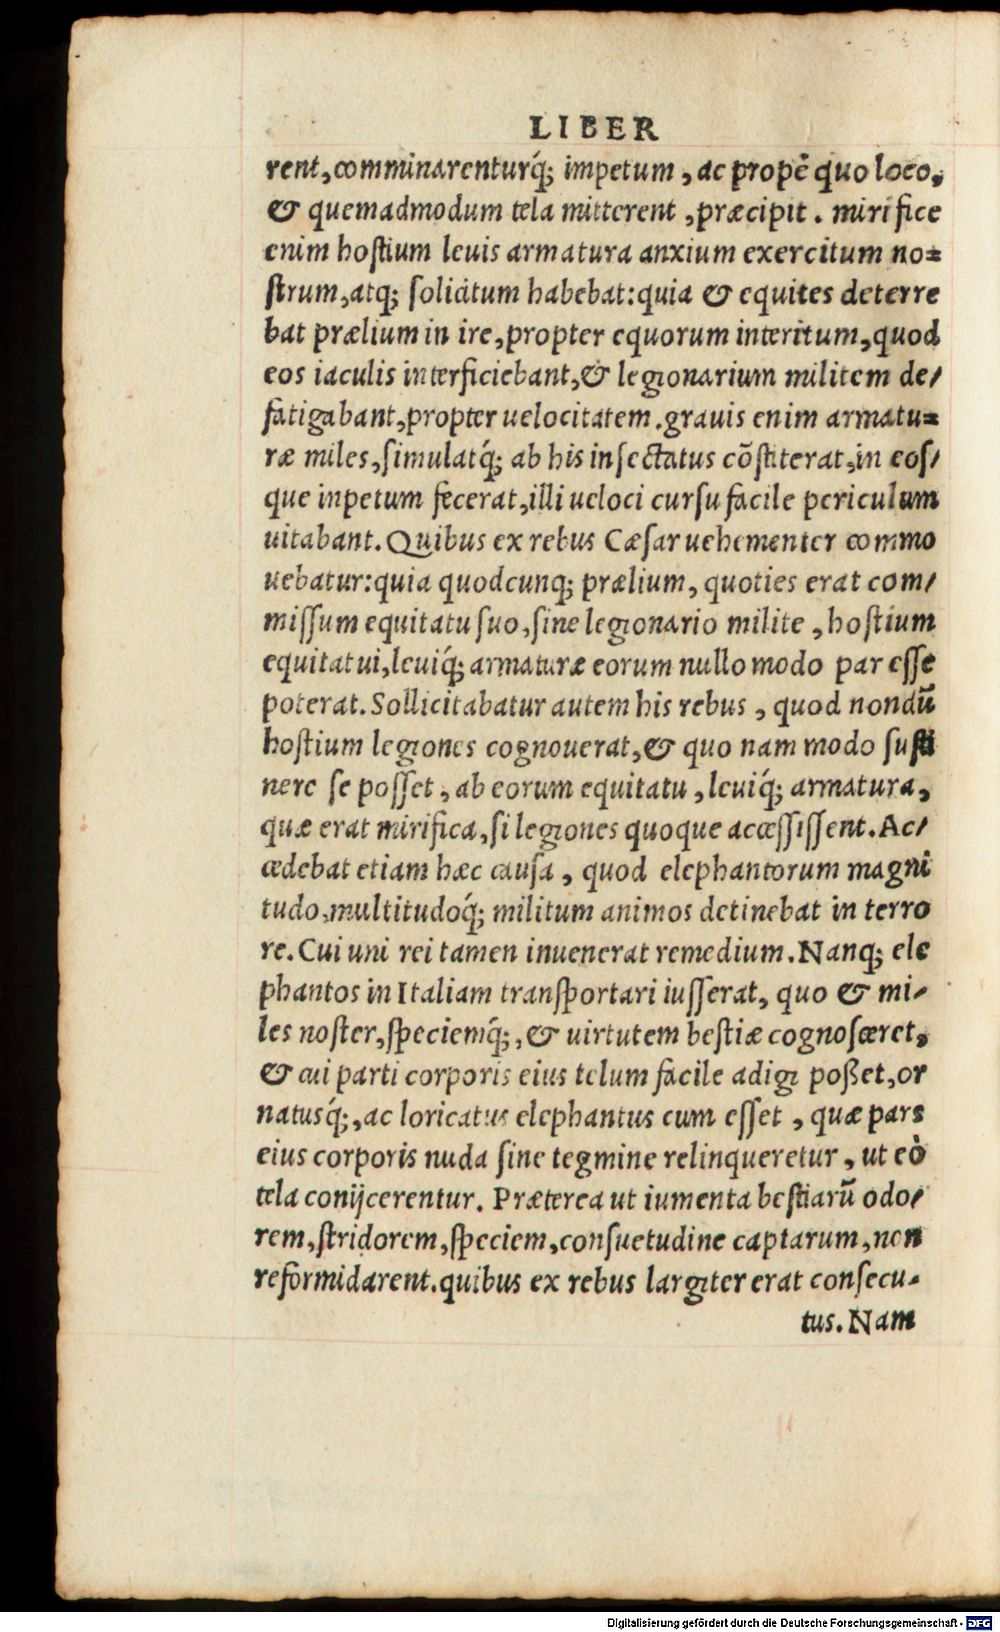 LIBER
rent, comminarenturq́; impetum, ac propè quo loco,
& quemadmodum tela mitterent, præcipit. mirifice
enim hostium leuis armatura anxium exercitum no=
strum, atq; solicitum habebat: quia & equites deterre
bat prælium in ire, propter equorum interitum, quod
eos iaculis interficiebant, & legionarium militem de/
fatigabant, propter uelocitatem. grauis enim armatu=
ræ miles, simulatq́; ab his insectatus cõstiterat, in eos/
que inpetum fecerat, illi ueloci cursu facile periculum
uitabant. Quibus ex rebus Cæsar uehementer commo
uebatur: quia quodcunq; prælium, quoties erat com/
missum equitatu suo, sine legionario milite, hostium
equitatui, leuiq́; armaturæ eorum nullo modo par esse
poterat. Sollicitabatur autem his rebus, quod nondũ
hostium legiones cognouerat, & quo nam modo susti
nere se posset, ab eorum equitatu, leuiq́; armatura,
quæ erat mirifica, si legiones quoque accessissent. Ac/
cedebat etiam hæc causa, quod elephantorum magni
tudo, multitudoq́; militum animos detinebat in terro
re. Cui uni rei tamen inuenerat remedium. Nanq; ele
phantos in Italiam transportari iusserat, quo & mi/
les noster, speciemq́;, & uirtutem bestiæ cognosceret,
& cui parti corporis eius telum facile adigi poßet, or
natusq́;, ac loricatus elephantus cum esset, quæ pars
eius corporis nuda sine tegmine relinqueretur, ut eò
tela conijcerentur. Præterea ut iumenta bestiarũ odo/
rem, stridorem, speciem, consuetudine captarum, non
reformidarent. quibus ex rebus largiter erat consecu-
tus. Nam
Digitalisierung gefördert durch die Deutsche Forschungsgemeinschaft - DFG